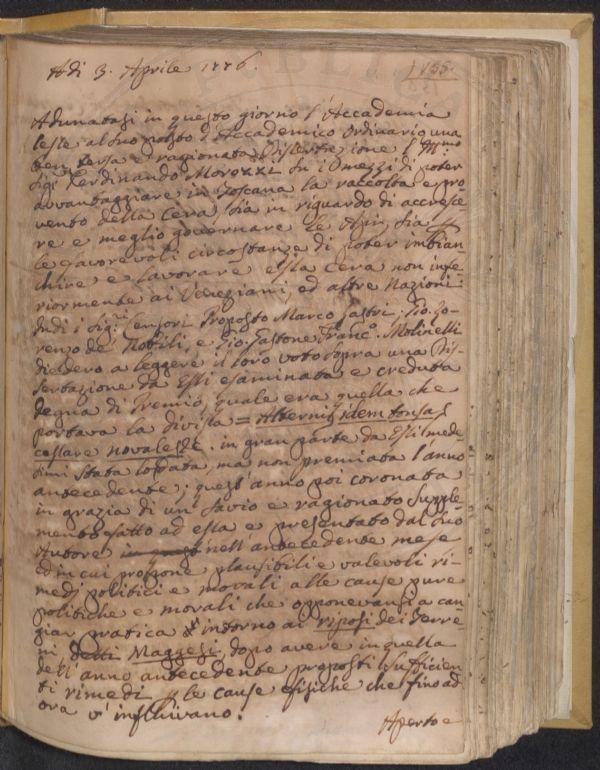 Adi 3. Aprile 1776.
155.
Adunatasi in questo giorno l'Accademia
lesse al suo posto d'Accademico ordinario una
ben tersa e ragionata Dissertazione l'Ill.mo
Sig.r Ferdinando Morozzi su i mezzi di poter
avvantaggiare in Toscana la raccolta e pro
vento della Cera, sia in riguardo di accresce
re e meglio governare le Api, sia
le favorevoli circostanze di poter imbian
chire e lavorare essa Cera non infe
riormente ai Veneziani, ed altre Nazioni.
Indi i Sig.ri Censori Proposto Marco Lastri, Gio. Lo-
renzo de' Nobili, e Gio. Gastone Franc.o Molinelli
diedero a leggere il loro voto sopra una Dis
sertazione da Essi esaminata e creduta
degna di Premio quale era quella che
portava la divisa = Alternis idem tonsas
cessare novales &c. in gran parte da Essi mede
simi stata lodata, ma non premiata l'anno
antecedente; quest'anno poi coronata
in grazia di un savio e ragionato Supple
mento fatto ad essa e presentato dal suo
Autore nell'antecedente mese
ed in cui propone plausibili e valevoli ri
medj politici e morali alle cause pure
politiche e morali che opponevansi a can
giar pratica intorno ai riposi dei Terre
ni detti Maggesi, dopo avere in quella
dell'anno antecedente proposti sufficien
ti rimedi le cause fisiche che fino ad
ora v'influivano.
Aperto e